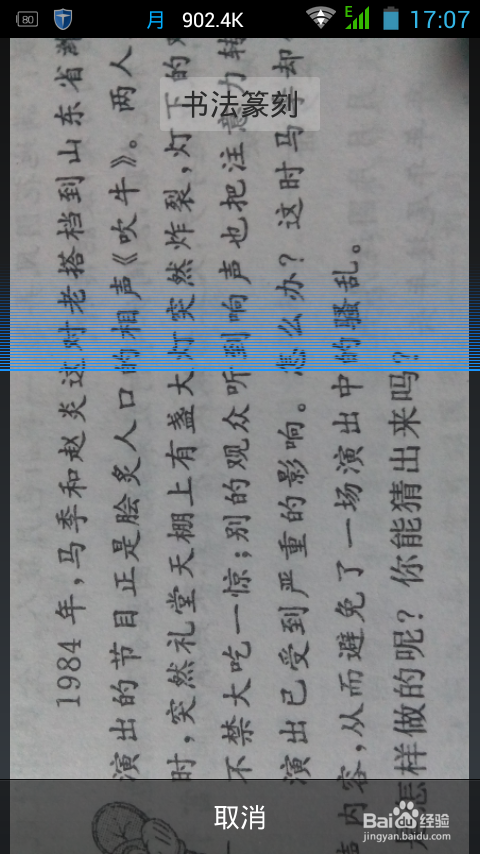 80 月 902.4K E 17:07
书法篆刻
1984年,马季和赵炎这对老搭档到山东省
演出的节目正是脍炙人口的相声《吹牛》。两人
时,突然礼堂天棚上有盏大灯突然炸裂,灯下的
不禁大吃一惊;别的观众听到响声也把注意力转
演出已受到严重的影响。怎么办?这时马季却
内容,从而避免了一场演出中的骚乱。
怎样做的呢?你能猜出来吗?
取消
Baidu经验
jingyan.baidu.com